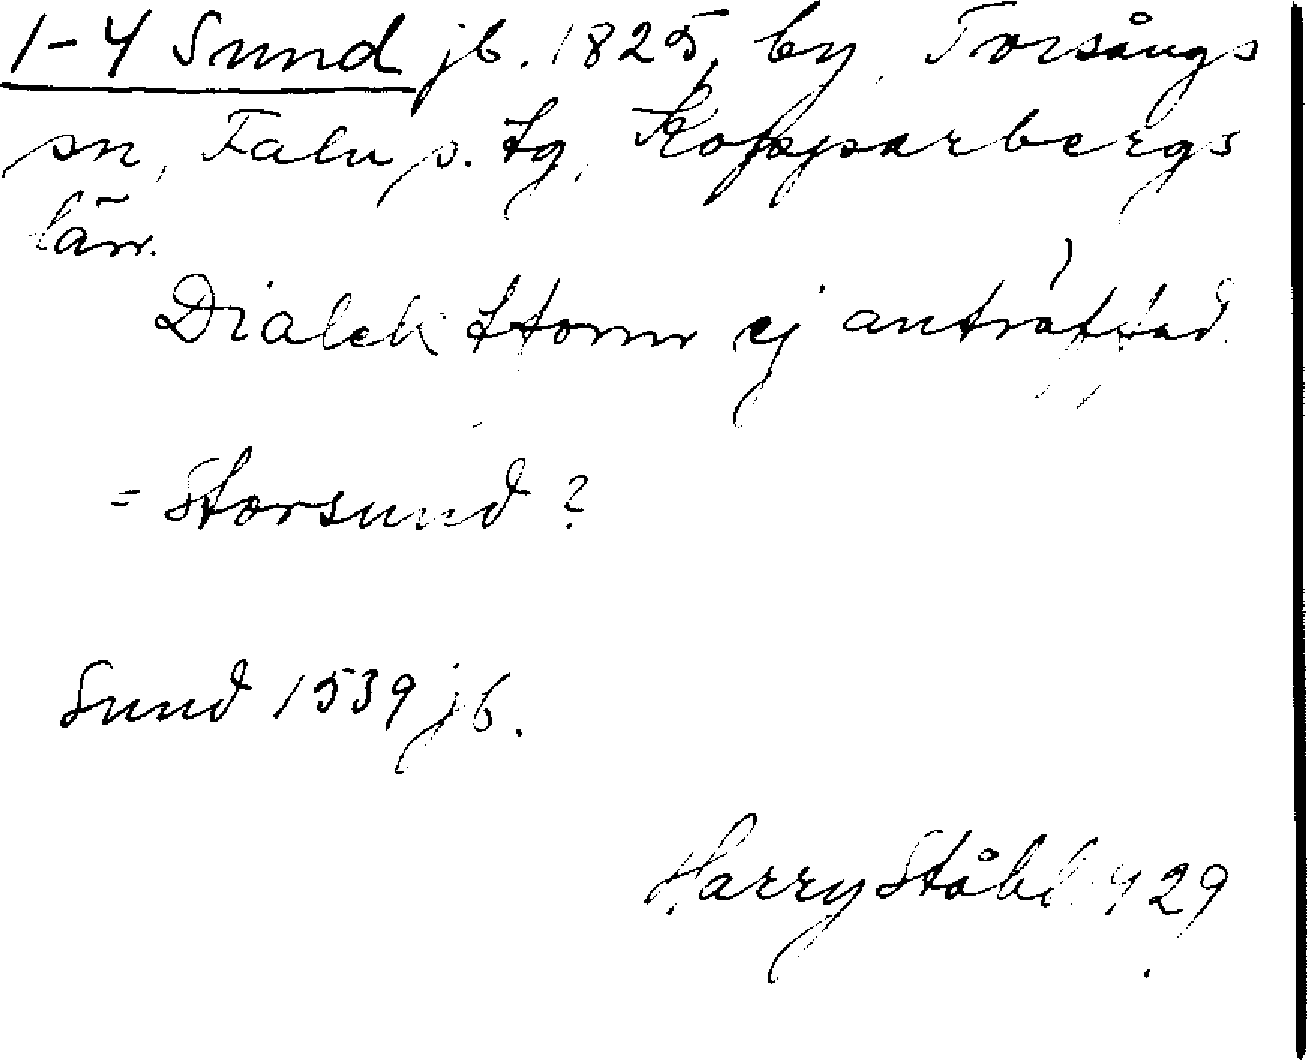 1-4 Sund jb. 1825, by, Torsångs
sn, Falu s. tg, Kopparbergs
län.
Dialektform ej anträffad.
= Storsund?
Sund 1539 jb.
Harry Ståhl 429